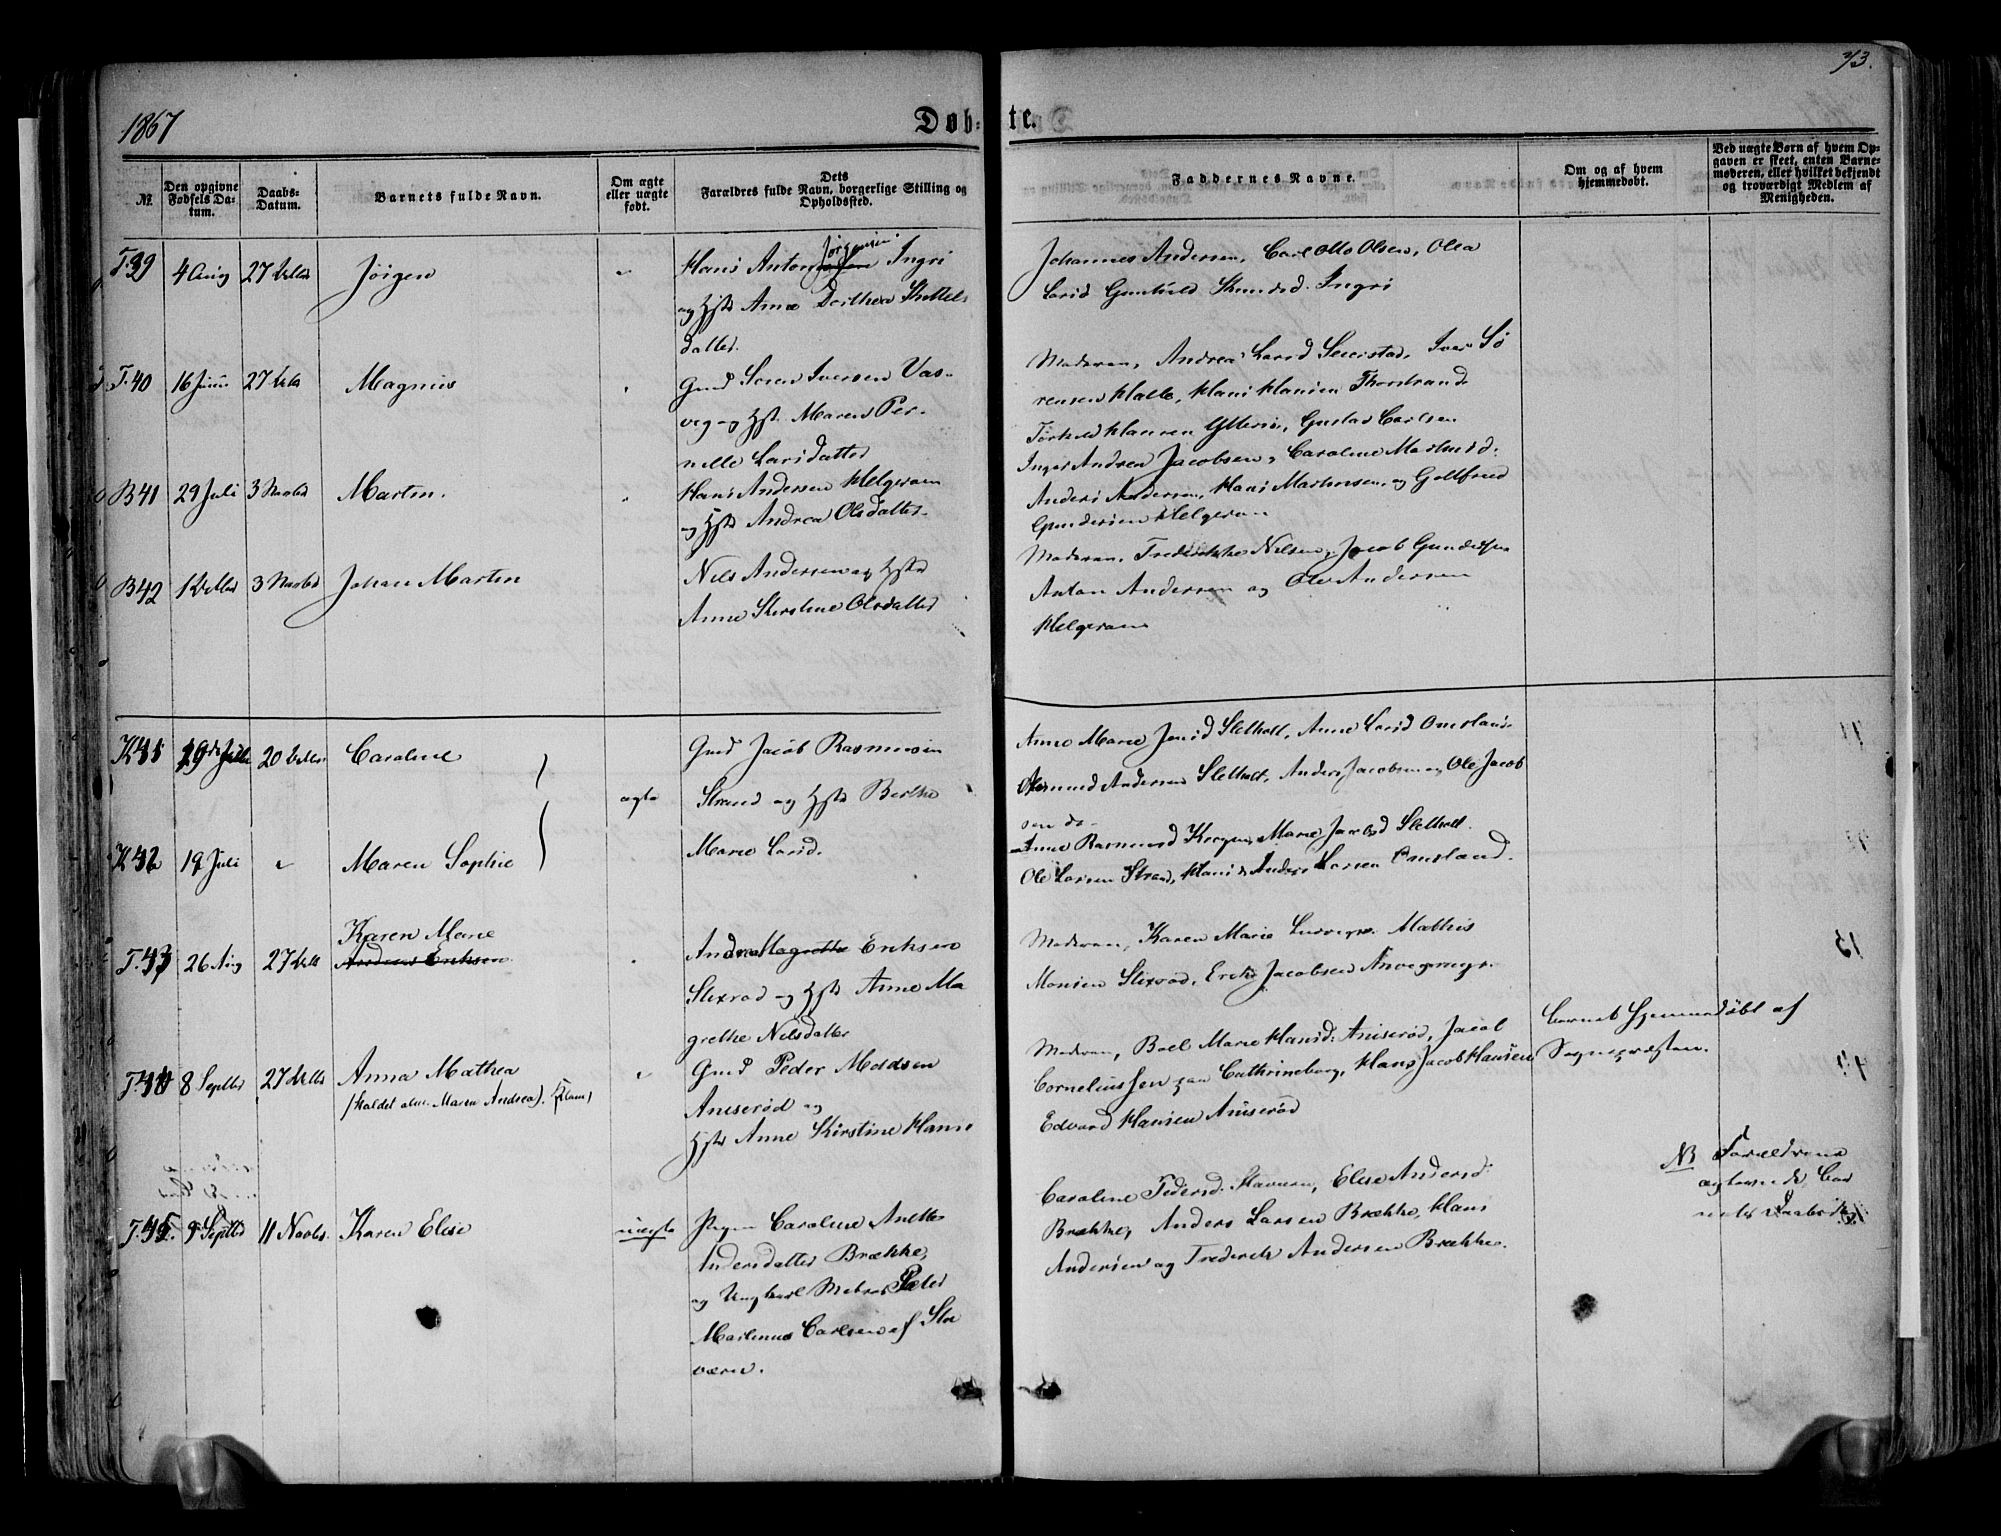 73.
1867
Døb-te.
№
Den opgivne Fødsels Datum.
Daabs-Datum.
Barnets fulde Navn.
Om ægte eller uægte født.
Dets Forældres fulde Navn, borgerlige Stilling og Opholdssted.
Faddernes Navne.
Om og af hvem hjemmedøbt.
Ved uægte Børn af hvem Opgaven er skeet, enten Barnemoderen, eller hvilket bekjendt og troværdigt Medlem af Menigheden.
T.39 4 Aug 27 Octbr Jörgen
Hans Anton Jörgensen Ingri
og Hst Anne Dorthea Kittels
datter.
Johannes Andersen, Carl Otto Olsen, Olea
Larsd Gunhild Knudsd. Ingri
T.40 16 Juni 27 Octb Magnus
Gmd Søren Iversen Vas-
veg og Hst. Maren Per-
nille Larsdatter
Moderen, Andrea Larsd Seierstad, Iver Sö
rensen Halle, Hans Hansen Thorstrand
Törkild Hansen Ytterø, Gustav Carlsen
B41 29 Juli 3 Novbr Martin.
Hans Andersen Helgeroen
og Hst Andrea Olsdatter
Inger Andrea Jacobsen, Caroline Mathisd.
Anders Andersen, Hans Mathisen, og Gottfried
Gundersen Helgeroen
B42 1 Octbr 3 Novbr Johan Martin
Nils Andersen og Hst
Anne Kirstine Olsdatter
Moderen, Frederikke Nilsen, Jacob Gundersen
Anton Andersen og Ole Andersen
Helgeroen
K41 19de Juli 20 Octbr Caroline
ægte
Gmd Jacob Rasmusen
Strand og Hst Berthe
Anne Marie Jensd Sletholt, Anne Larsd Omsland
Asmund Andersen Sletholt, Anders Jacobsen og Ole Jacob
sen do-
K42 19 Juli Maren Sophie
Marie Larsd.
Anne Rasmusd Krogen, Marie Jacobsd Sletholt.
Ole Larsen Strand, Hans & Anders Larsen Omsland.
T.43 26 Aug 27 Octb Karen Marie
Andreas Eriksen
Andrea Magrethe Eriksen
Slexrød og Hst Anne Ma
grethe Nilsdatter
Moderen, Karen Marie Mathis
Monsen Slexrød, Erik Jacobsen
T.44 8 Septbr 27 Octbr Anna Mathea
(kaldet alm. Maren Andrea).
Gmd Peder Moldsen
Aniserød og
Hst Anne Kirstine Hans
Moderen, Boel Marie Hansd: Aniserød, Jacob
Corneliussen paa Cathrineborg, Hans Jacob Hansen
Edvard Hansen Aniserød
Barnet hjemmedøbt af
Sognepræsten.
T.45 9 Septbr 11 Novbr. Karen Elise
uægte
Pigen Caroline Anette
Andersdatter Brække,
og Ungkarl Matros Peter
Martinus Carlsen af Sta
værn.
Caroline Pedersd: Stavern, Elise Andersd:
Brække, Anders Larsen Brække, Hans
Andersen og Frederik Andersen Brække.
NB Forældrene
ægteviede Bar
nets Daabsdag